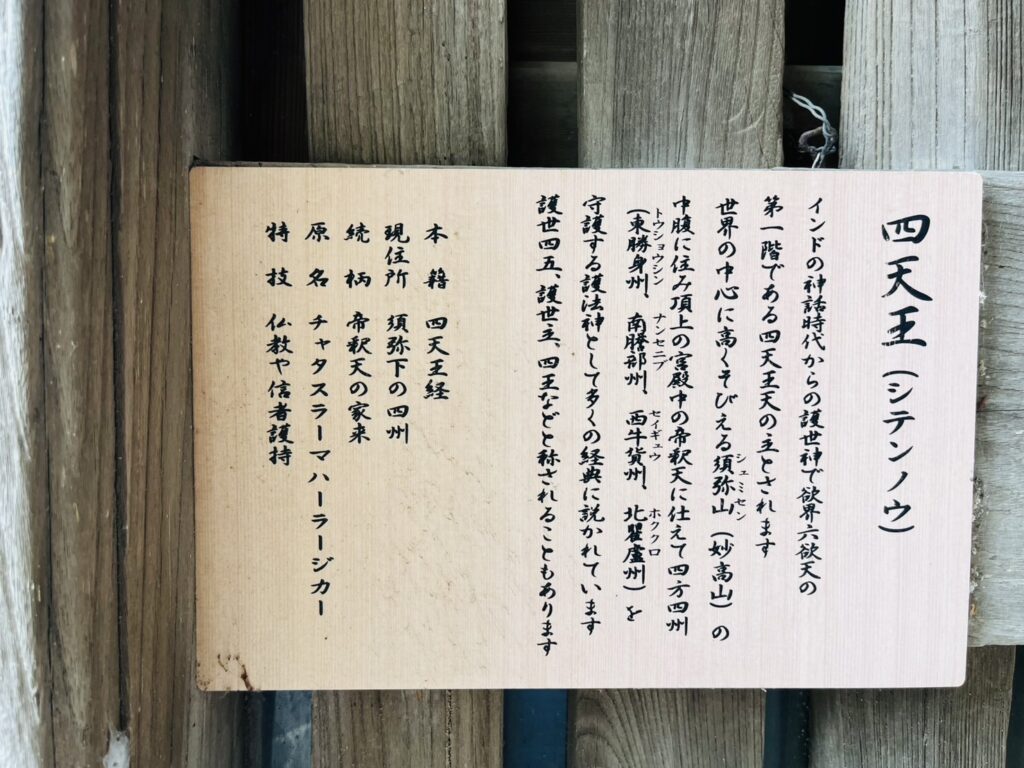 四天王（シテンノウ）
インドの神話時代からの護世神で欲界六欲天の
第一階である四天王天の主とされます
世界の中心に高くそびえる須弥山（妙高山）の
シュミセン
中腹に住み頂上の宮殿中の帝釈天に仕えて四方四州
（東勝身州、南贍部州、西牛貨州、北瞿盧州）を
トウショウシン ナンセニブ セイギュウ ホククロ
守護する護法神として多くの経典に説かれています
護世四王、護世主、四王などと称されることもあります
本籍 四天王経
現住所 須弥下の四州
続柄 帝釈天の家来
原名 チャタスラーマハーラージカー
特技 仏教や信者護持